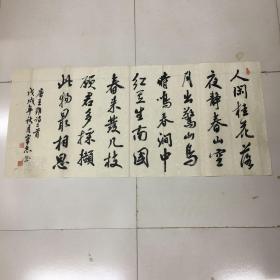 人闲桂花落
夜静春山空
月出惊山鸟
时鸣春涧中
红豆生南国
春来发几枝
愿君多採撷
此物最相思
唐王维诗二首
戊戌年秋月